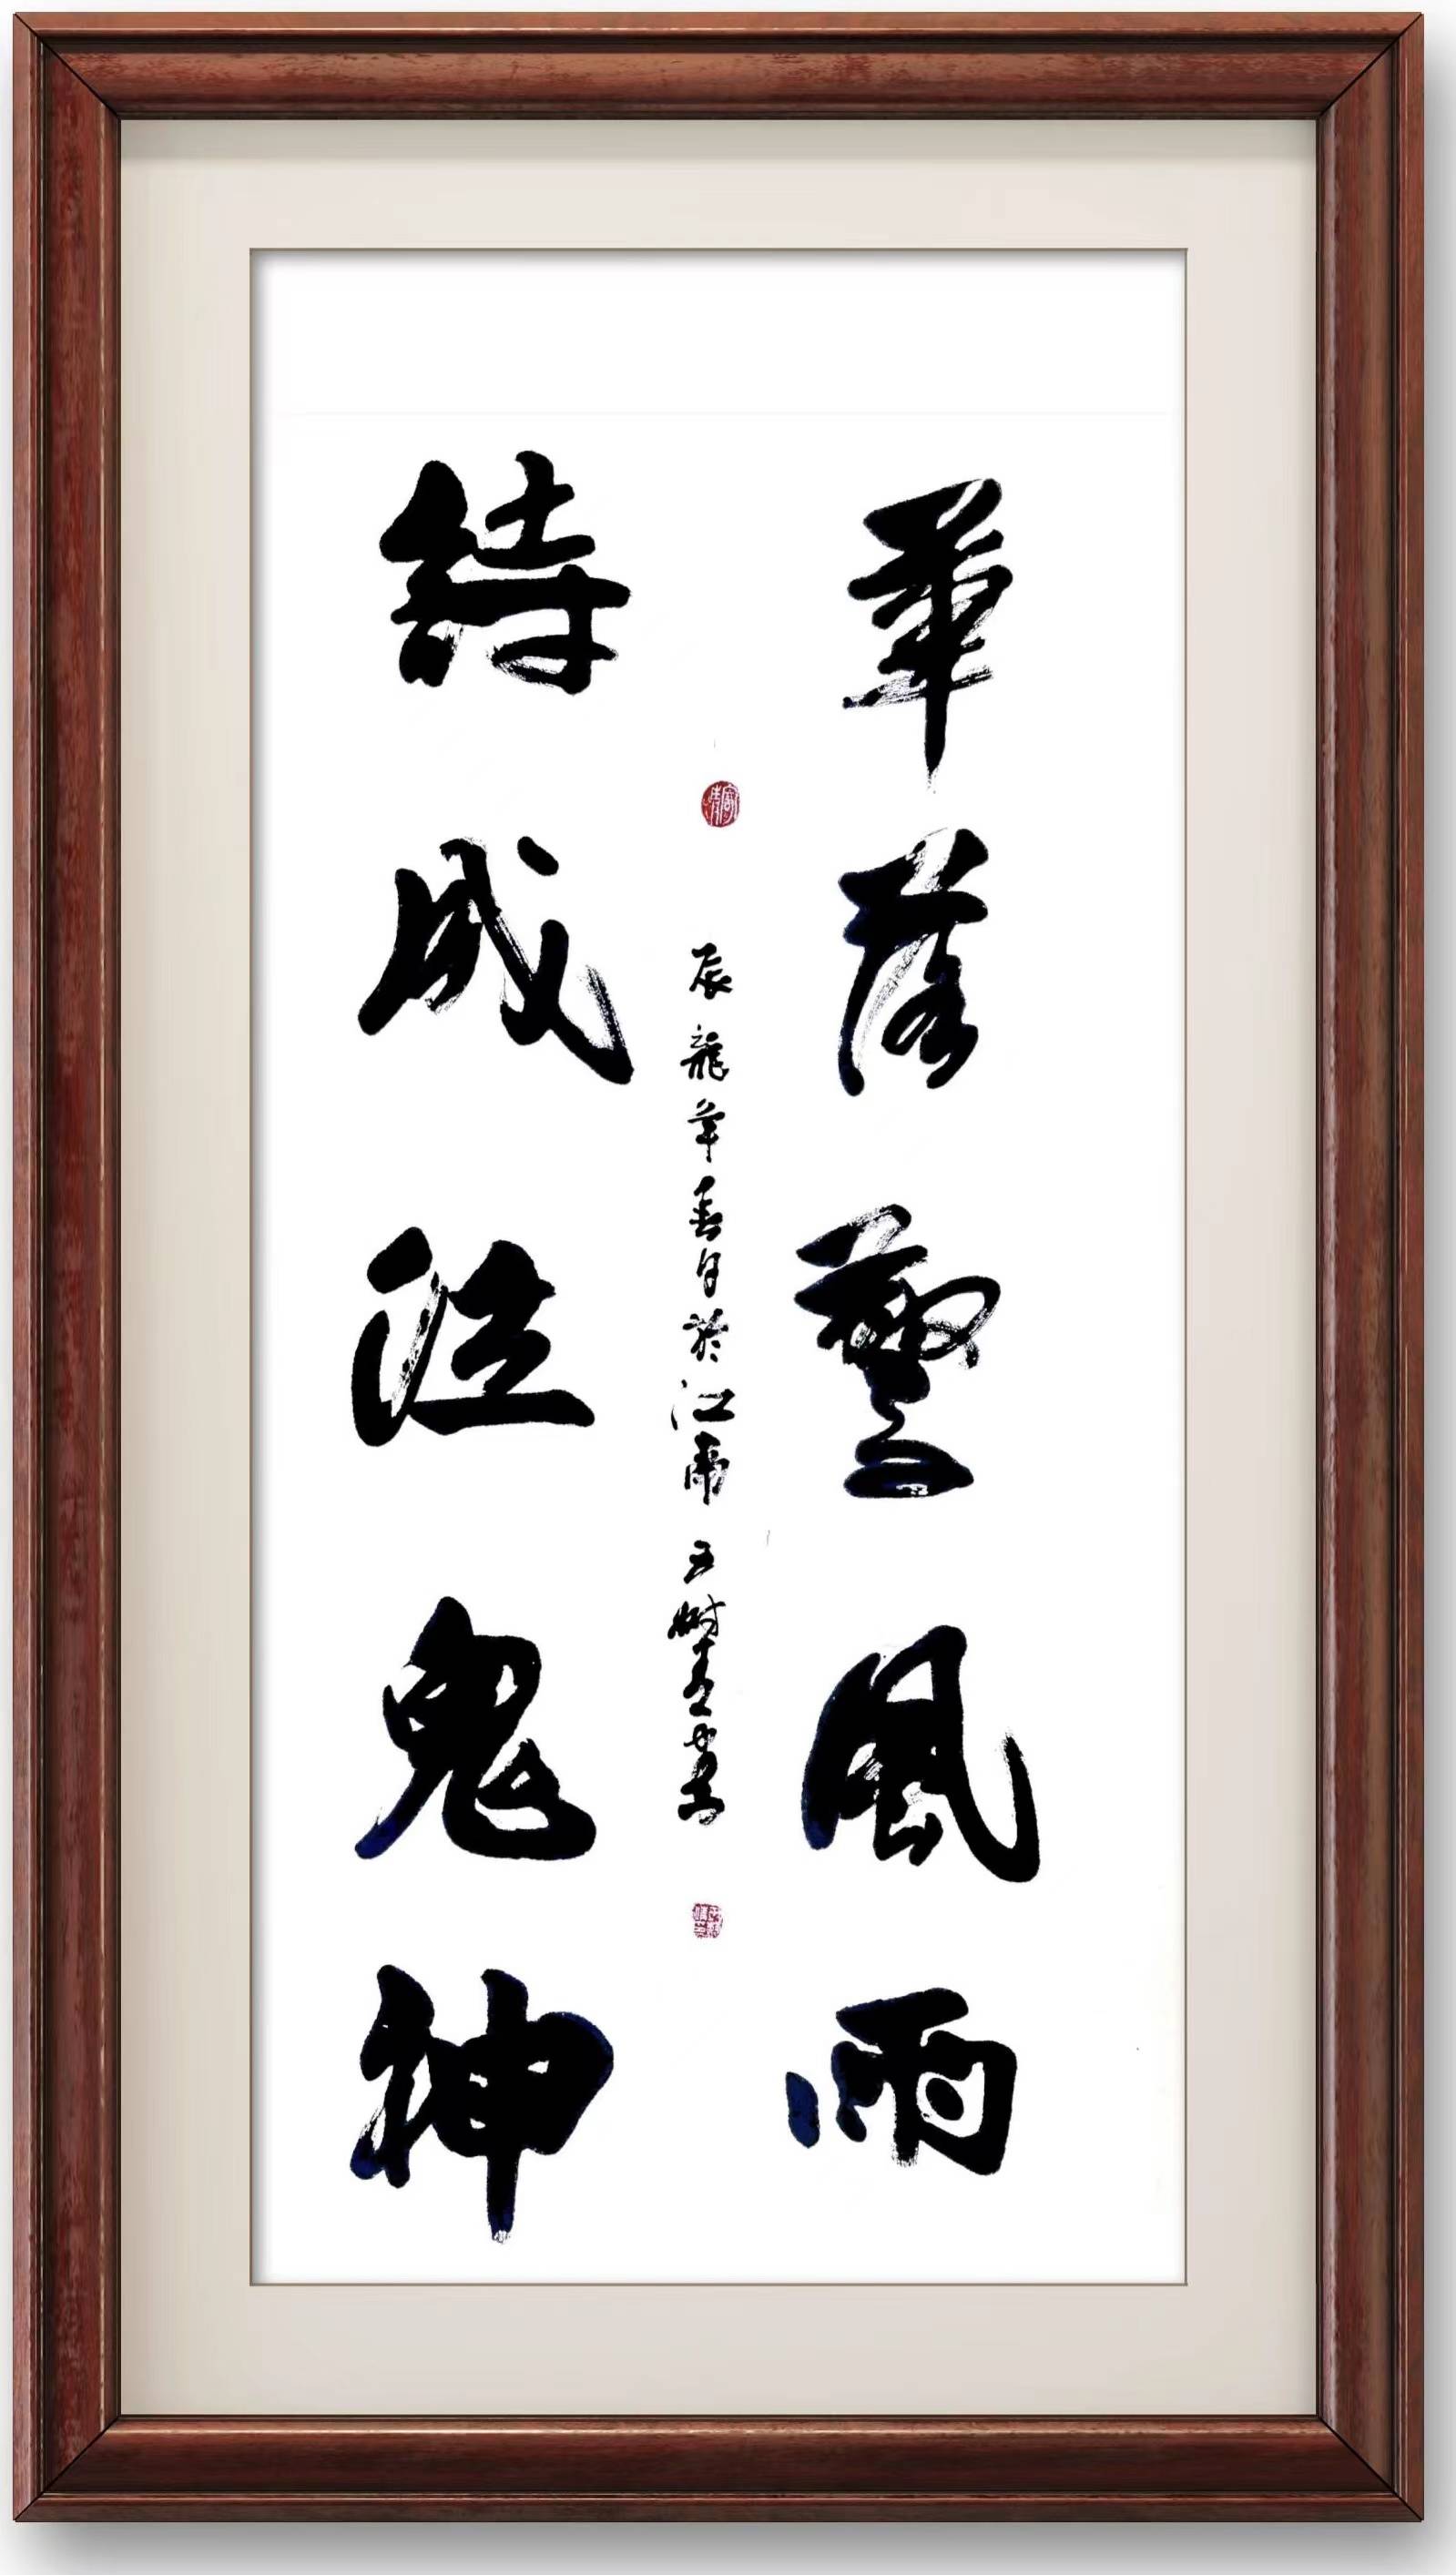 筆落驚風雨
詩成泣鬼神
辰龍年春月於江南